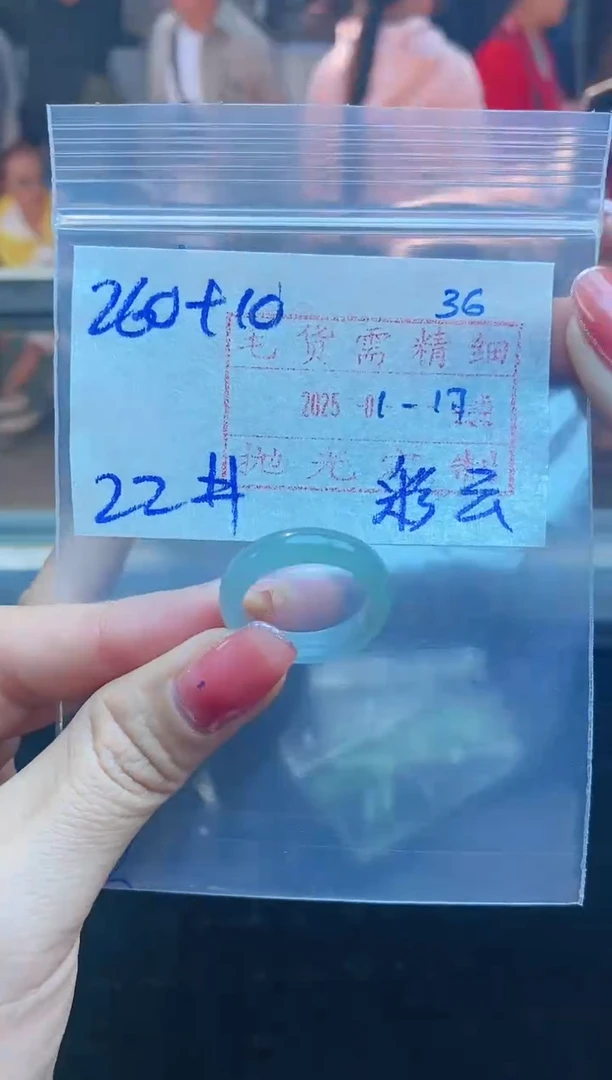 260+10 36
毛货需精细
2025-01-17
抛光定制
22# 彩云